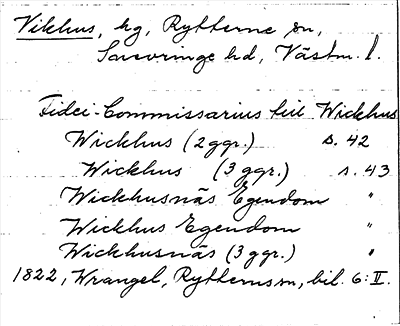 Vikhus, hg, Rytterne sn,
Snevringe hd, Västm. l.
Fidei-Commissarius till Wickhus
Wickhus (2 ggr.) s. 42
Wickhus (3 ggr.) s. 43
Wickhusnäs Egendom "
Wickhus Egendom "
Wickhusnäs (3 ggr.) "
1822, Wrangel, Rytternesn, bil. 6:II.